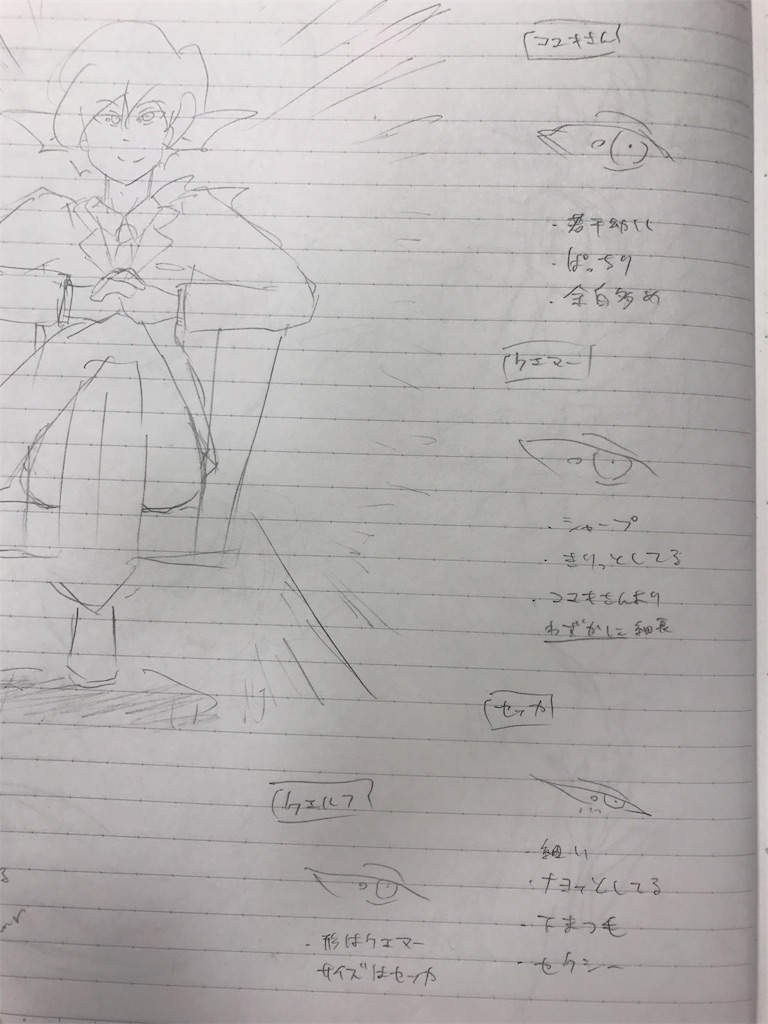 コスモさん
・若干幼い
・ぱっちり
・余白多め
クエマー
・シャープ
・きりっとしてる
・コスモさんより
わずかに細長
セッカ
・細い
・ナヨッとしてる
・下まつ毛
・セクシー
・形はクエマー
サイズはセッカ